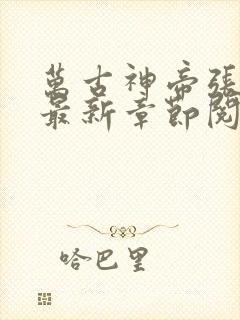 萬古神帝張
最新章節閱
哈巴里